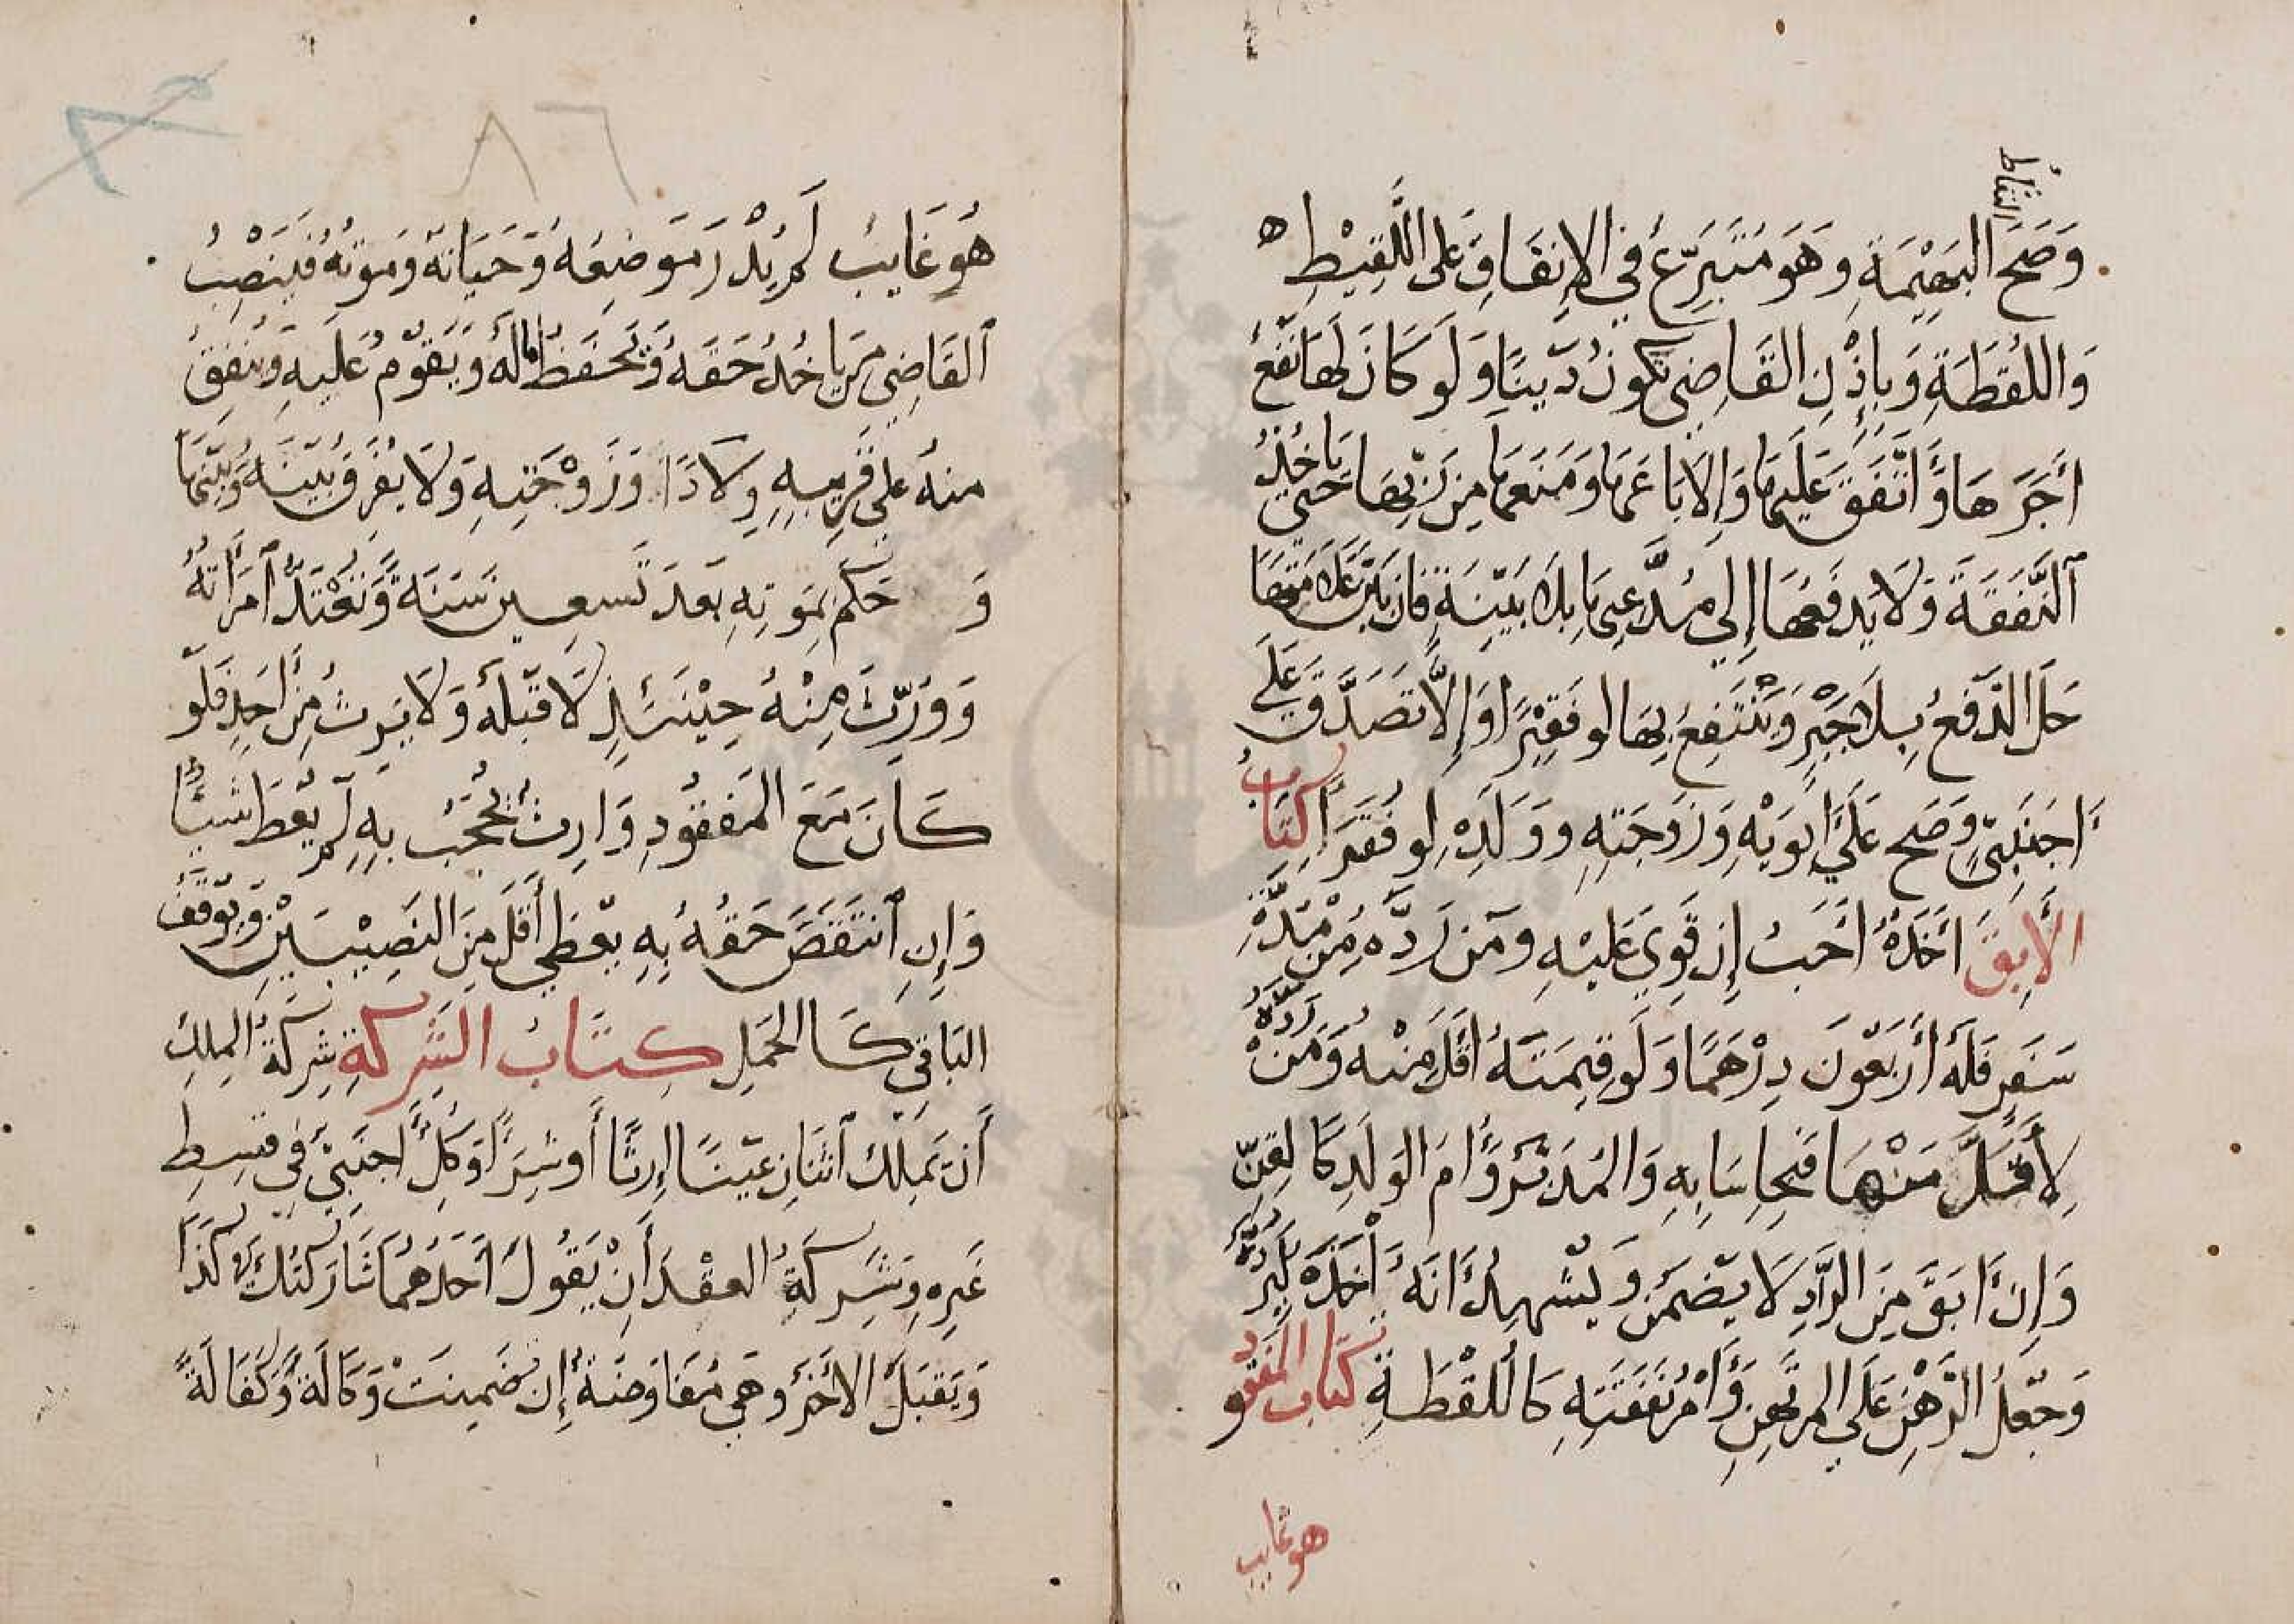 التقاط
وَصَحَّ البَهِيْمَةِ وَهَوَ مُتَبَرِّعٌ فِي الاِنفَاقِ عَلى اللَّقِيْطِ ه
وَاللُقطَةِ وَبِاِذْنِ القَاضِي تكونُ دَيناً وَلَو كَانَ لَهَا نَفعٌ
أجَرَهَا وَاَنْفَقَ عَلَيهَا وَاِلَا بَاعَهَا وَمَنَعَهَا مِن رَبِّهَا حَتي يَاخُذَ
اَلنَّفَقَةَ وَلَا يُدفَعُهَا إِلي مُدَّعِيهَا بِلَا بَيّنَةٍ فَان بَيَّنَ عَلَامَتَهَا
حَلَ الدَفعُ بِلَا جَبْرٍ وَيَنْتَفِعُ بِهَا لو فَقِيْرًا وَاِلَّا تصَدَّقَ عَلَي
اَجنَبِيّ وَصَح عَلَيَ اَبوَيْهِ وَزَوجَتِهِ وَوَلَدِهِ لو فُقَرَا كِتَابُ
الآبِقَ اَخَذهُ اَحَبُ إِن قَوِيَ عَليْهِ وَمَن رَدَّه مِنْ مُدَّةِ
سَفَرٍ فَلَهُ أَربَعُونَ دِرْهَمًا وَلَو قِيمَتَهُ اَقَلَ مِنْه وَمَنْ رَدَّهُ
لِاَقَلَّ مِنْهَا فَبِحِسَابِهِ وَالمُدَبَّرُ وَاُمَ الوَلَدِ كَالقِنّ
وَاِن اَبَقَ مِنَ الرَّادِ لَا يَضمَن وَيُشْهِدُ اَنَهُ اَخَذَهُ لِيَرُدَّهُ
وَجُعْلُ الرَّهْنِ عَلَي المرتَهِنِ وَاَمْرُ نَفَقَتِهِ كَاللُقْطَةِ كتَاب المَفقود
هو غايب
٨٦
هُوَ غَايبٌ لَم يُدْرَ مَوضِعُهُ وَحَيَاتهُ وَمَوتهُ فَيَنصِبُ
اَلقَاضِي مَن يَاخُذُ حَقَهُ وَيَحفَظُ مَالَهُ وَيَقُومُ عَلَيهِ وَيُنفِقُ
مِنهُ عَلي قَرِيبِهِ وِلادًا وَزَوْجَتِهِ وَلَا يفَرِقُ بَيْنَه وَبَيْنَهَا
وَ حَكَمَ بمَوتِهِ بَعدَ تَسعِين سَنَةً وَتَعْتَدُّ اَمَرَاَتهُ
وَوَرِّثَ مِنْهُ حِيْنَئذٍ لَا قبْلَهُ وَلَا يَرِثُ مِن اَحَدٍ فَلَو
كَانَ مَعَ المَفقُودِ وَارِثٌ يُحْجَبُ بِهِ لَم يُعْطَ شَيئًا
وَإِنِ اَنتَقَصَ حَقُهُ بِهِ يعْطَي أَقَلَ مِنَ النَصِيْبَيْنِ وَيُوقَفُ
البَاقِي كَالحَمْلِ كِتَابُ الشَركةِ شِركَةُ المِلكِ
أَن يَملِكَ اَثنَانِ عَيْنًا اِرثًا أَو شِرًا وَكُلٌ اَجنَبِيٌ فِي قِسطِ
غَيرِه وَشَركَةُ العقْدِ اَنْ يَقُولَ اَحَدُهُمَا شَارَكتُكَ في كَذَا
وَيَقبَلُ الاَخَرُ وَهي مُفَاوَضَةٌ إِن ضَمِنَتْ وَكَالَةً وَكَفَالَةً